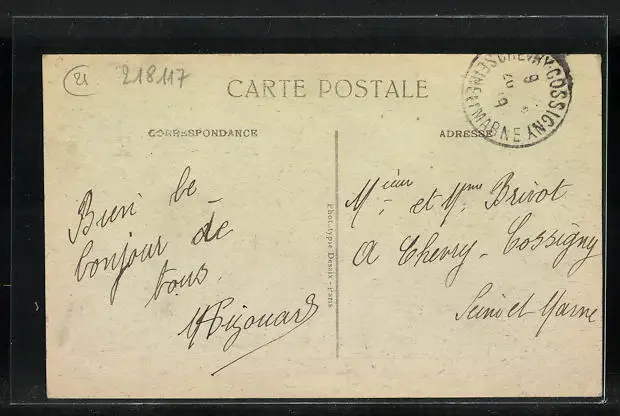 21
218117
CARTE POSTALE
CORRESPONDANCE
ADRESSE
CHEVRY-COSSIGNY
SEINE-ET-MARNE
Bien le
bonjour de
tous
Mᵉⁱᵘʳ et Mᵐᵉ Brivot
A Chevry-Cossigny
Seine et Marne
Phototypie Desaix - Paris